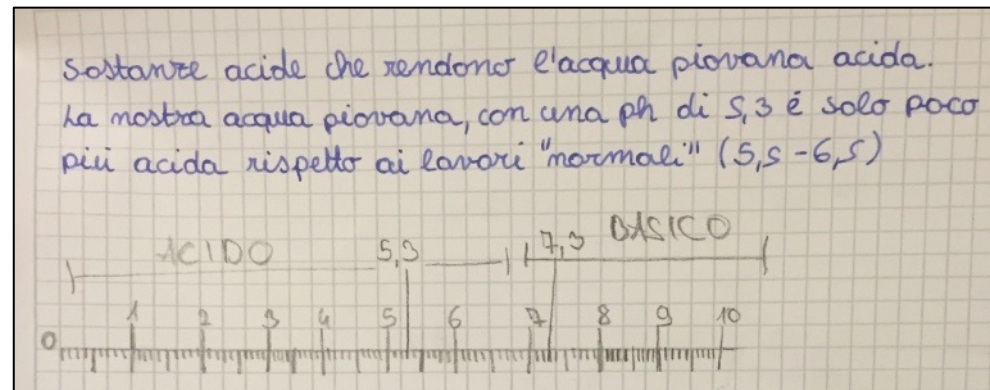 sostanze acide che rendono l'acqua piovana acida.
La nostra acqua piovana, con una ph di 5,3 é solo poco
più acida rispetto ai lavori "normali" (5,5-6,5)
ACIDO 5,3 7,3 BASICO
0 1 2 3 4 5 6 7 8 9 10